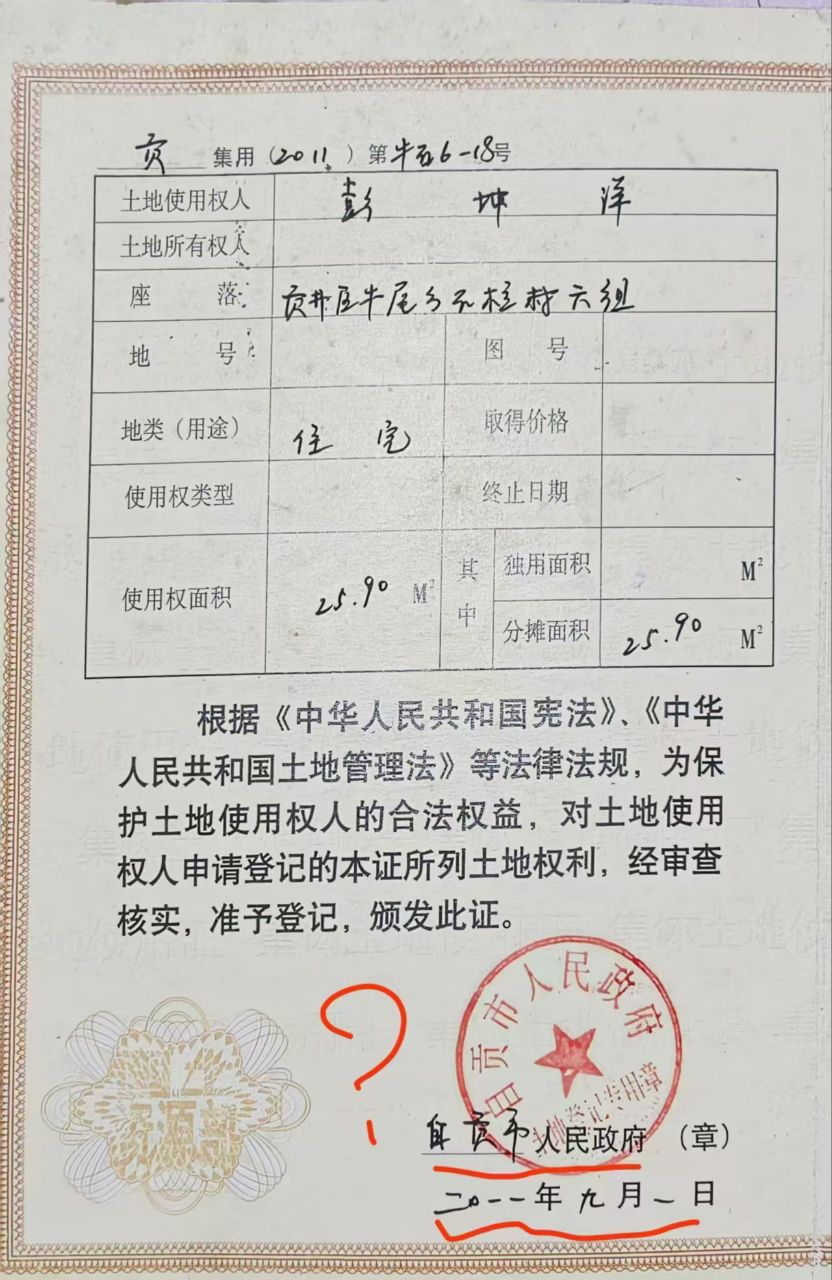 贡 集用（2011）第牛石6-18号
土地使用权人 彭坤洋
土地所有权人
座落 贡井区牛尾乡石柱村六组
地号 图号
地类（用途） 住宅 取得价格
使用权类型 终止日期
使用权面积 25.90 M² 其中 独用面积 M²
分摊面积 25.90 M²
根据《中华人民共和国宪法》、《中华
人民共和国土地管理法》等法律法规，为保
护土地使用权人的合法权益，对土地使用
权人申请登记的本证所列土地权利，经审查
核实，准予登记，颁发此证。
?
自贡市人民政府
土地登记专用章
自贡市 人民政府（章）
二〇一一年九月一日